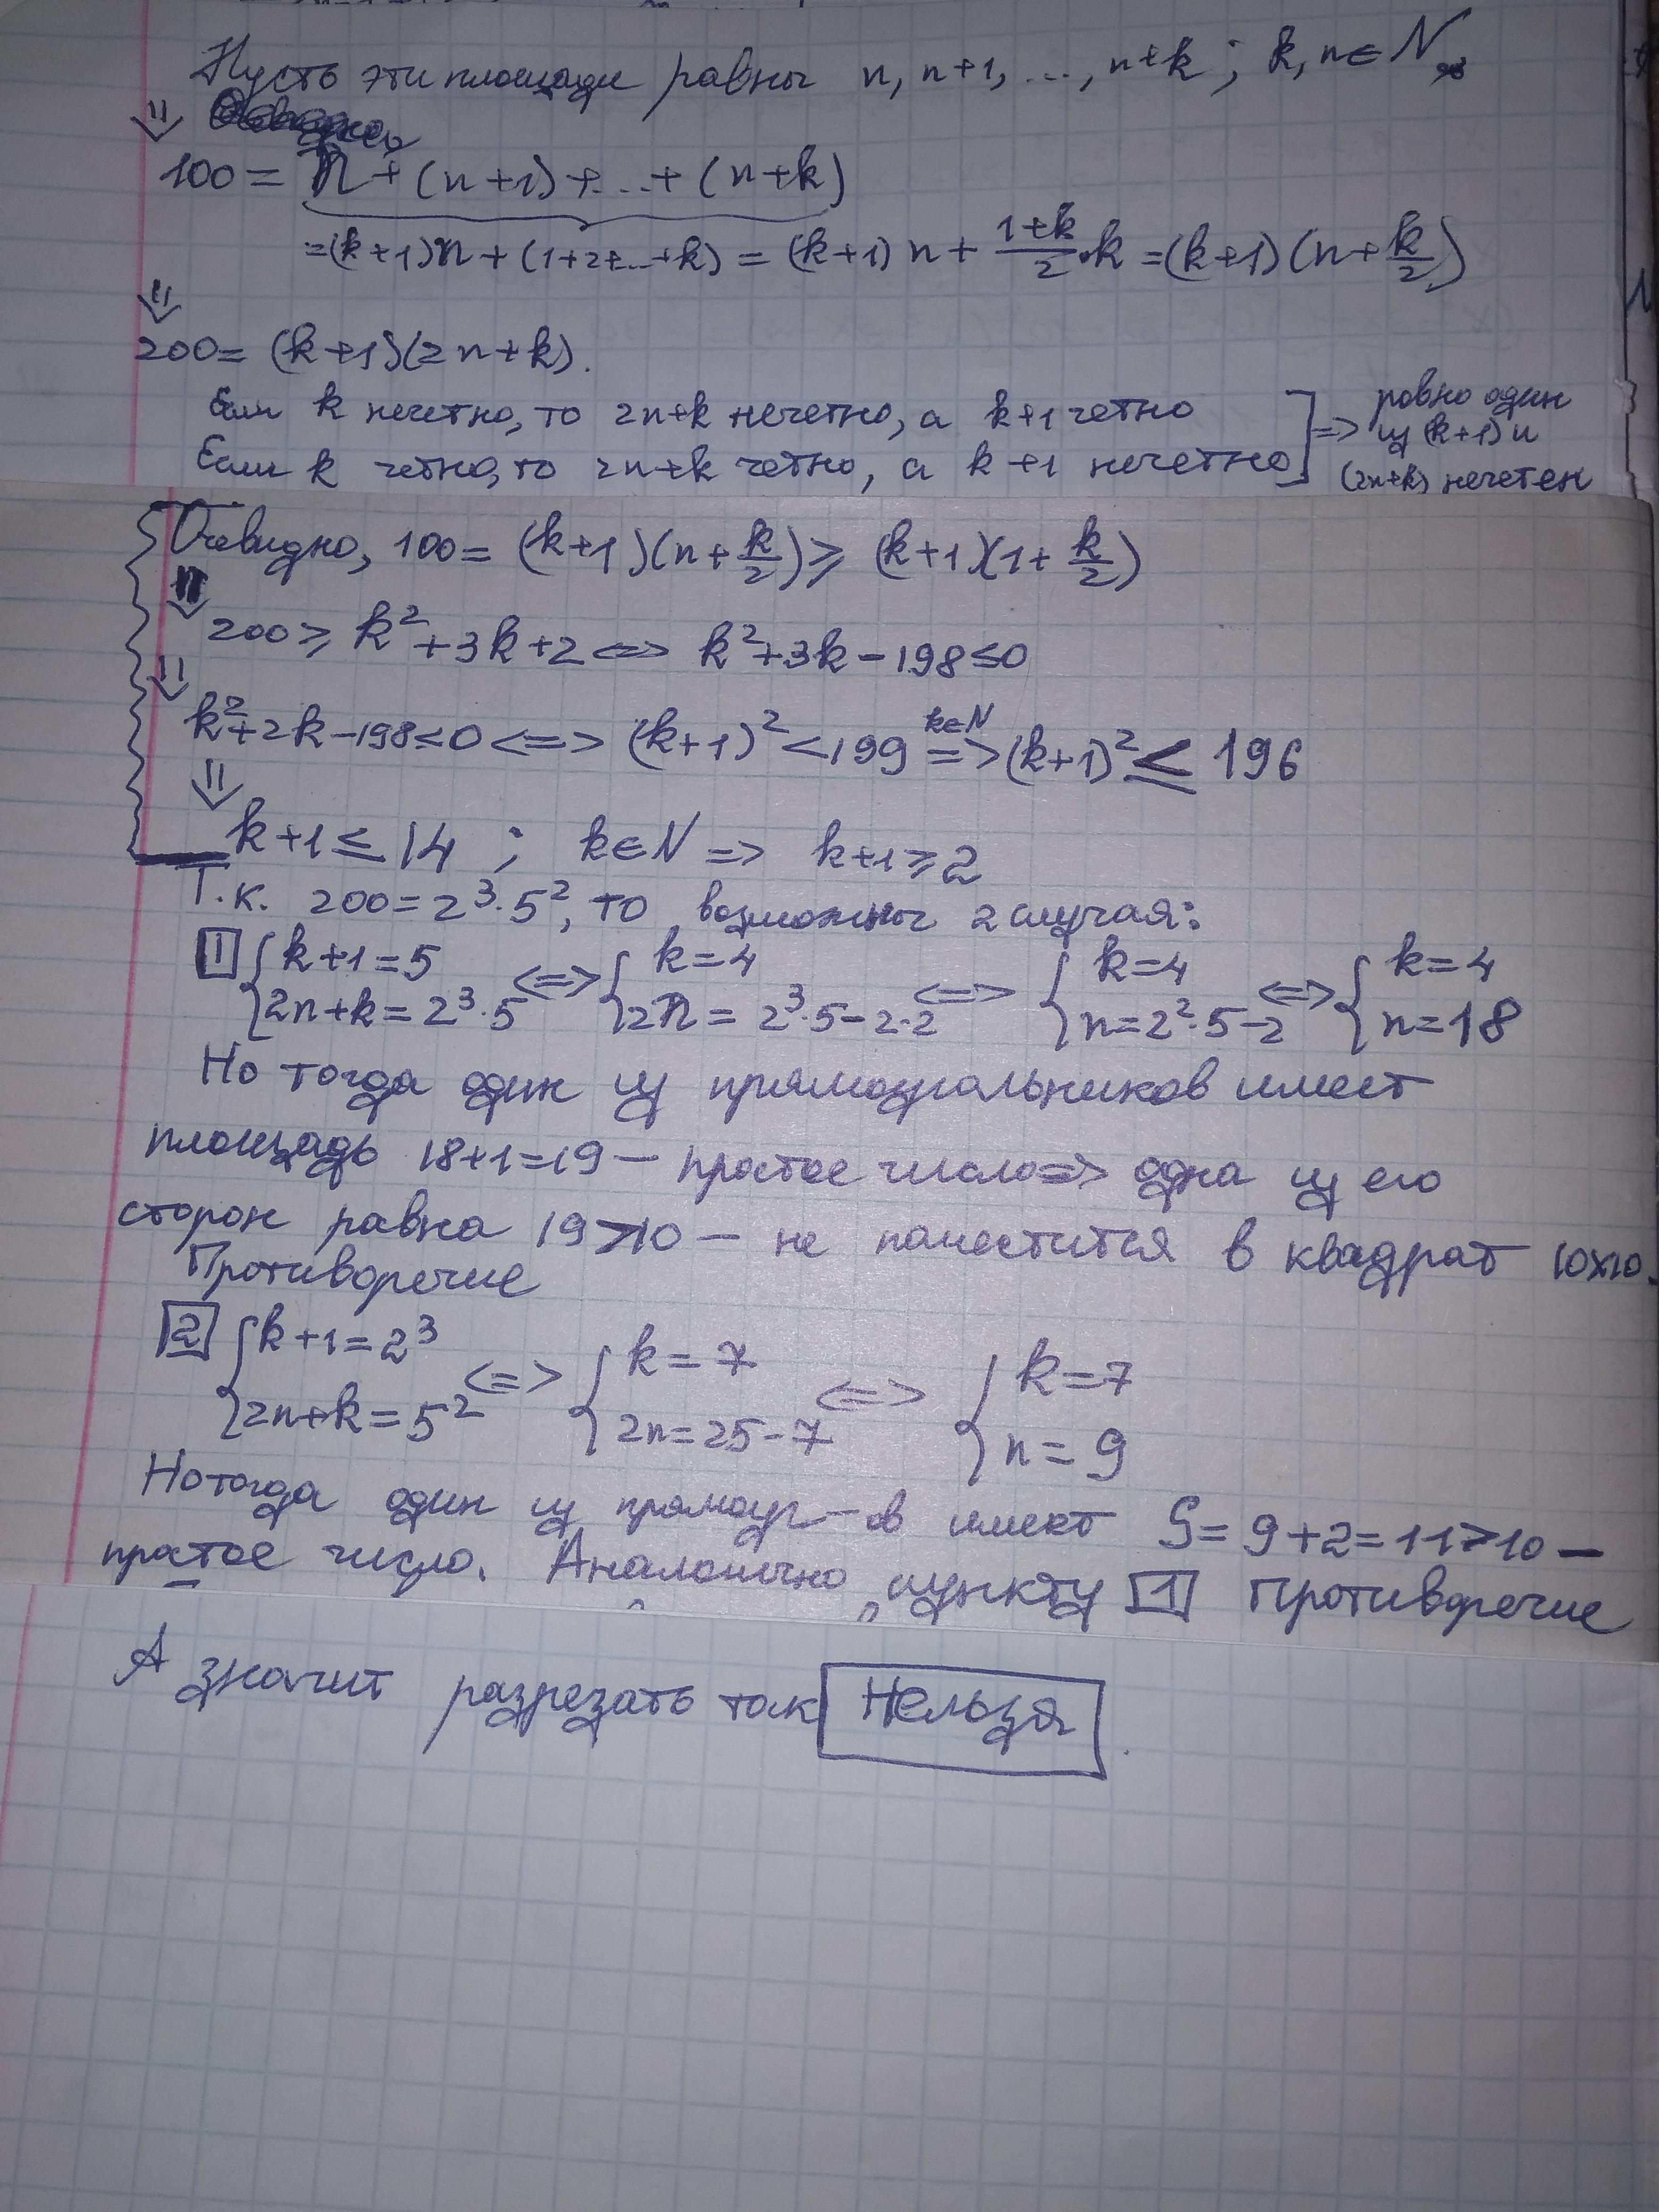 Пусть эти площади равны n, n+1, ..., n+k ; k, n ∈ N
⇓
100 = n + (n+1) + ... + (n+k)
= (k+1)n + (1+2+...+k) = (k+1)n + (1+k)/2 · k = (k+1)(n + k/2)
⇓
200 = (k+1)(2n+k).
Если k нечетно, то 2n+k нечетно, а k+1 четно
Если k четно, то 2n+k четно, а k+1 нечетно
] => ровно один
из (k+1) и
(2n+k) нечетен
Очевидно, 100 = (k+1)(n + k/2) ⩾ (k+1)(1 + k/2)
⇓
200 ⩾ k² + 3k + 2 <=> k² + 3k − 198 ≤ 0
⇓
k² + 2k − 198 ≤ 0 <=> (k+1)² < 199 k∈N => (k+1)² ≤ 196
⇓
k+1 ≤ 14 ; k ∈ N => k+1 ⩾ 2
Т.к. 200 = 2³·5², то возможны 2 случая:
1 { k+1 = 5 <=> { k = 4 <=> { k = 4 <=> { k = 4
2n+k = 2³·5 2n = 2³·5 − 2·2 n = 2²·5 − 2 n = 18
Но тогда один из прямоугольников имеет
площадь 18+1=19 — простое число => одна из его
сторон равна 19>10 — не поместится в квадрат 10x10.
Противоречие
2 { k+1 = 2³ <=> { k = 7 <=> { k = 7
2n+k = 5² 2n = 25 − 7 n = 9
Но тогда один из прямоуг-ов имеет S = 9+2 = 11 > 10 —
простое число. Аналогично пункту 1 Противоречие
А значит разрезать так Нельзя.